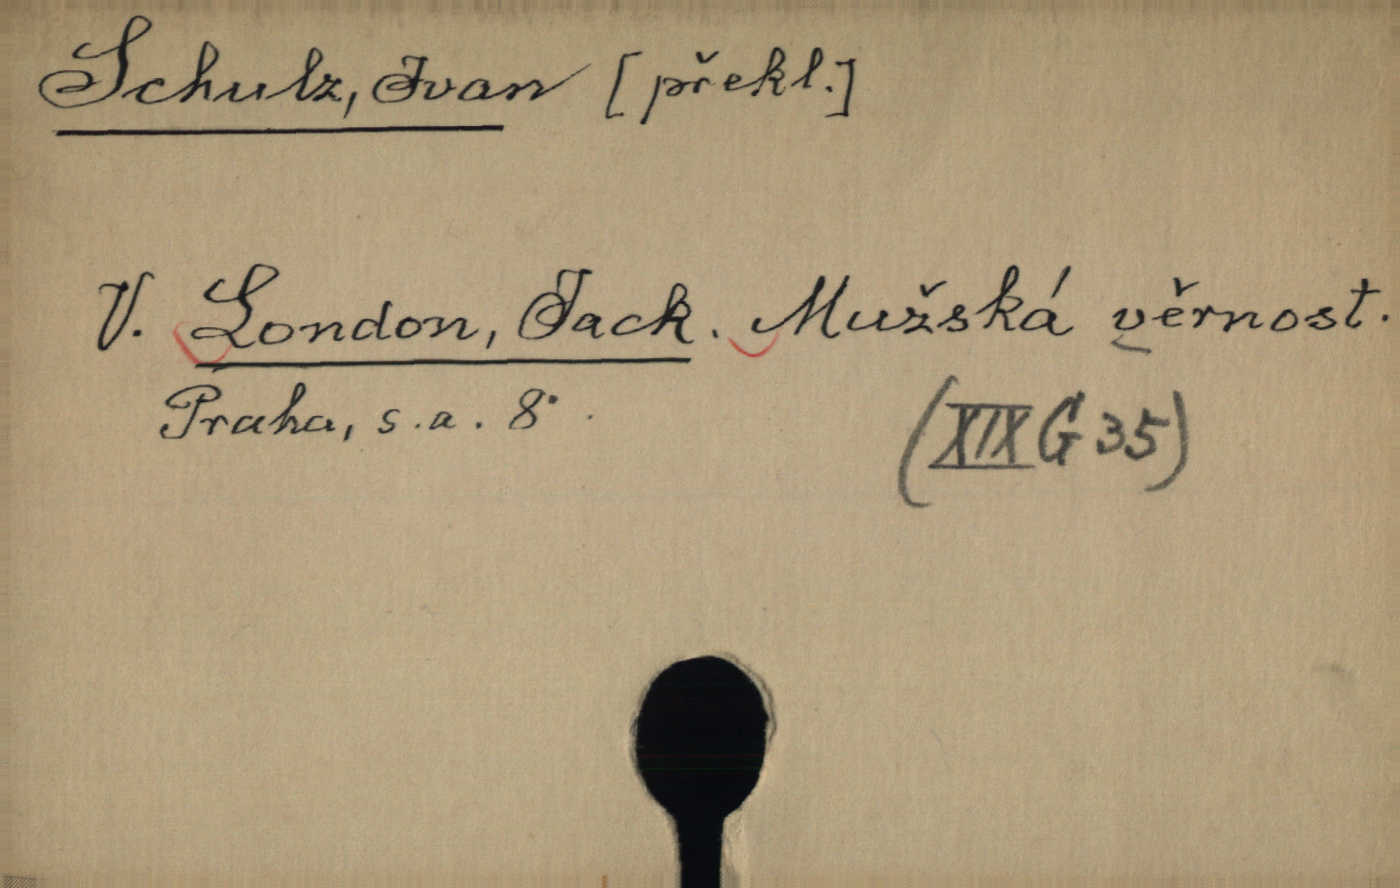 Schulz, Ivan [překl.]
V. London, Jack. Mužská věrnost.
Praha, s.a. 8°.
(XIX G 35)